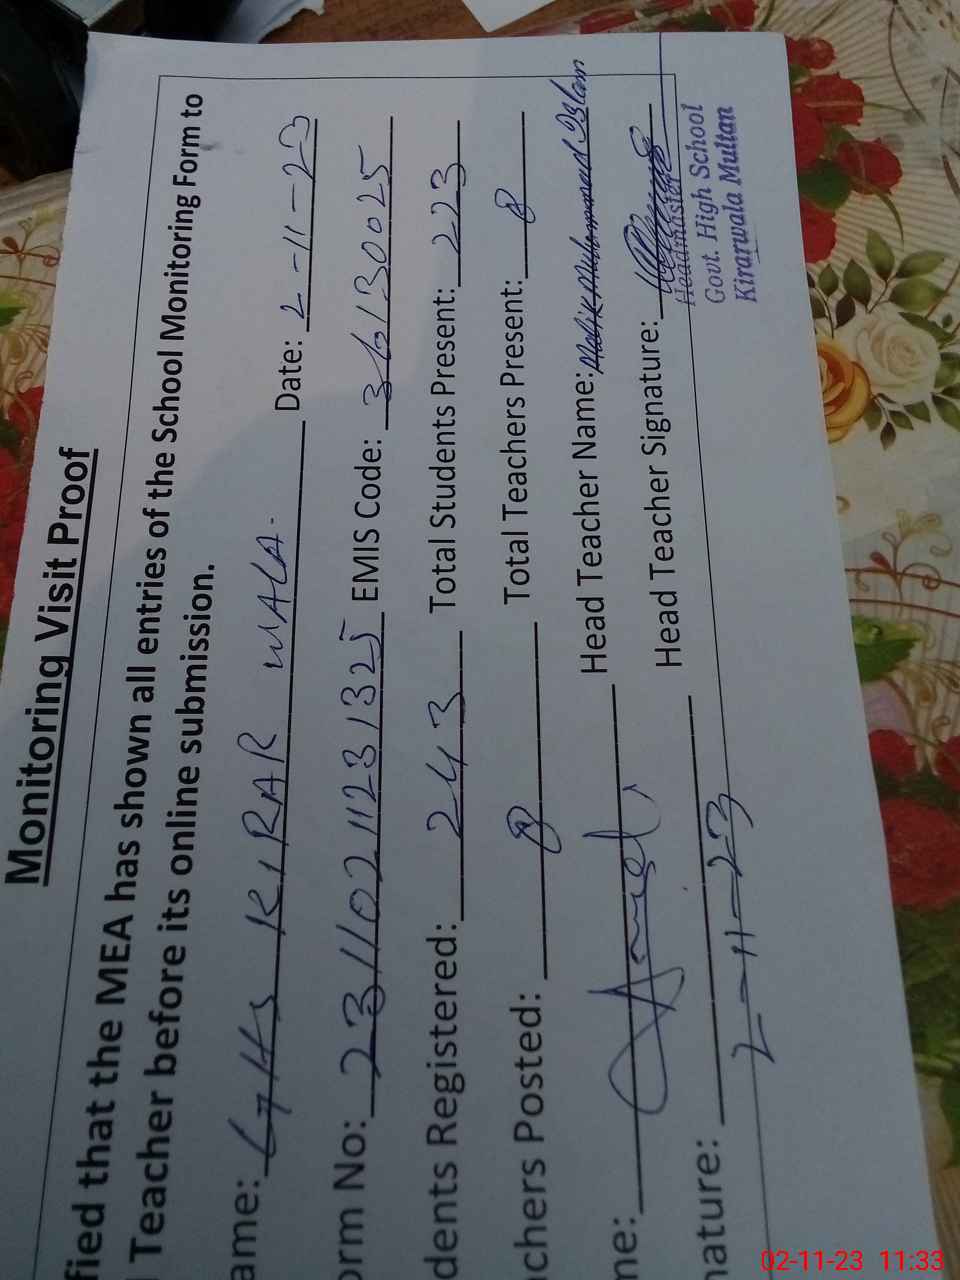 Monitoring Visit Proof
fied that the MEA has shown all entries of the School Monitoring Form to
Teacher before its online submission.
ame: GHS KIRAR WALA. Date: 2-11-23
orm No: 231102112313 25 EMIS Code: 36130025
dents Registered: 243 Total Students Present: 223
chers Posted: 8 Total Teachers Present: 8
me: Head Teacher Name: Malik Muhammad Islam
nature: Head Teacher Signature:
2-11-23
Headmaster
Govt. High School
Kirarwala Multan
02-11-23 11:33